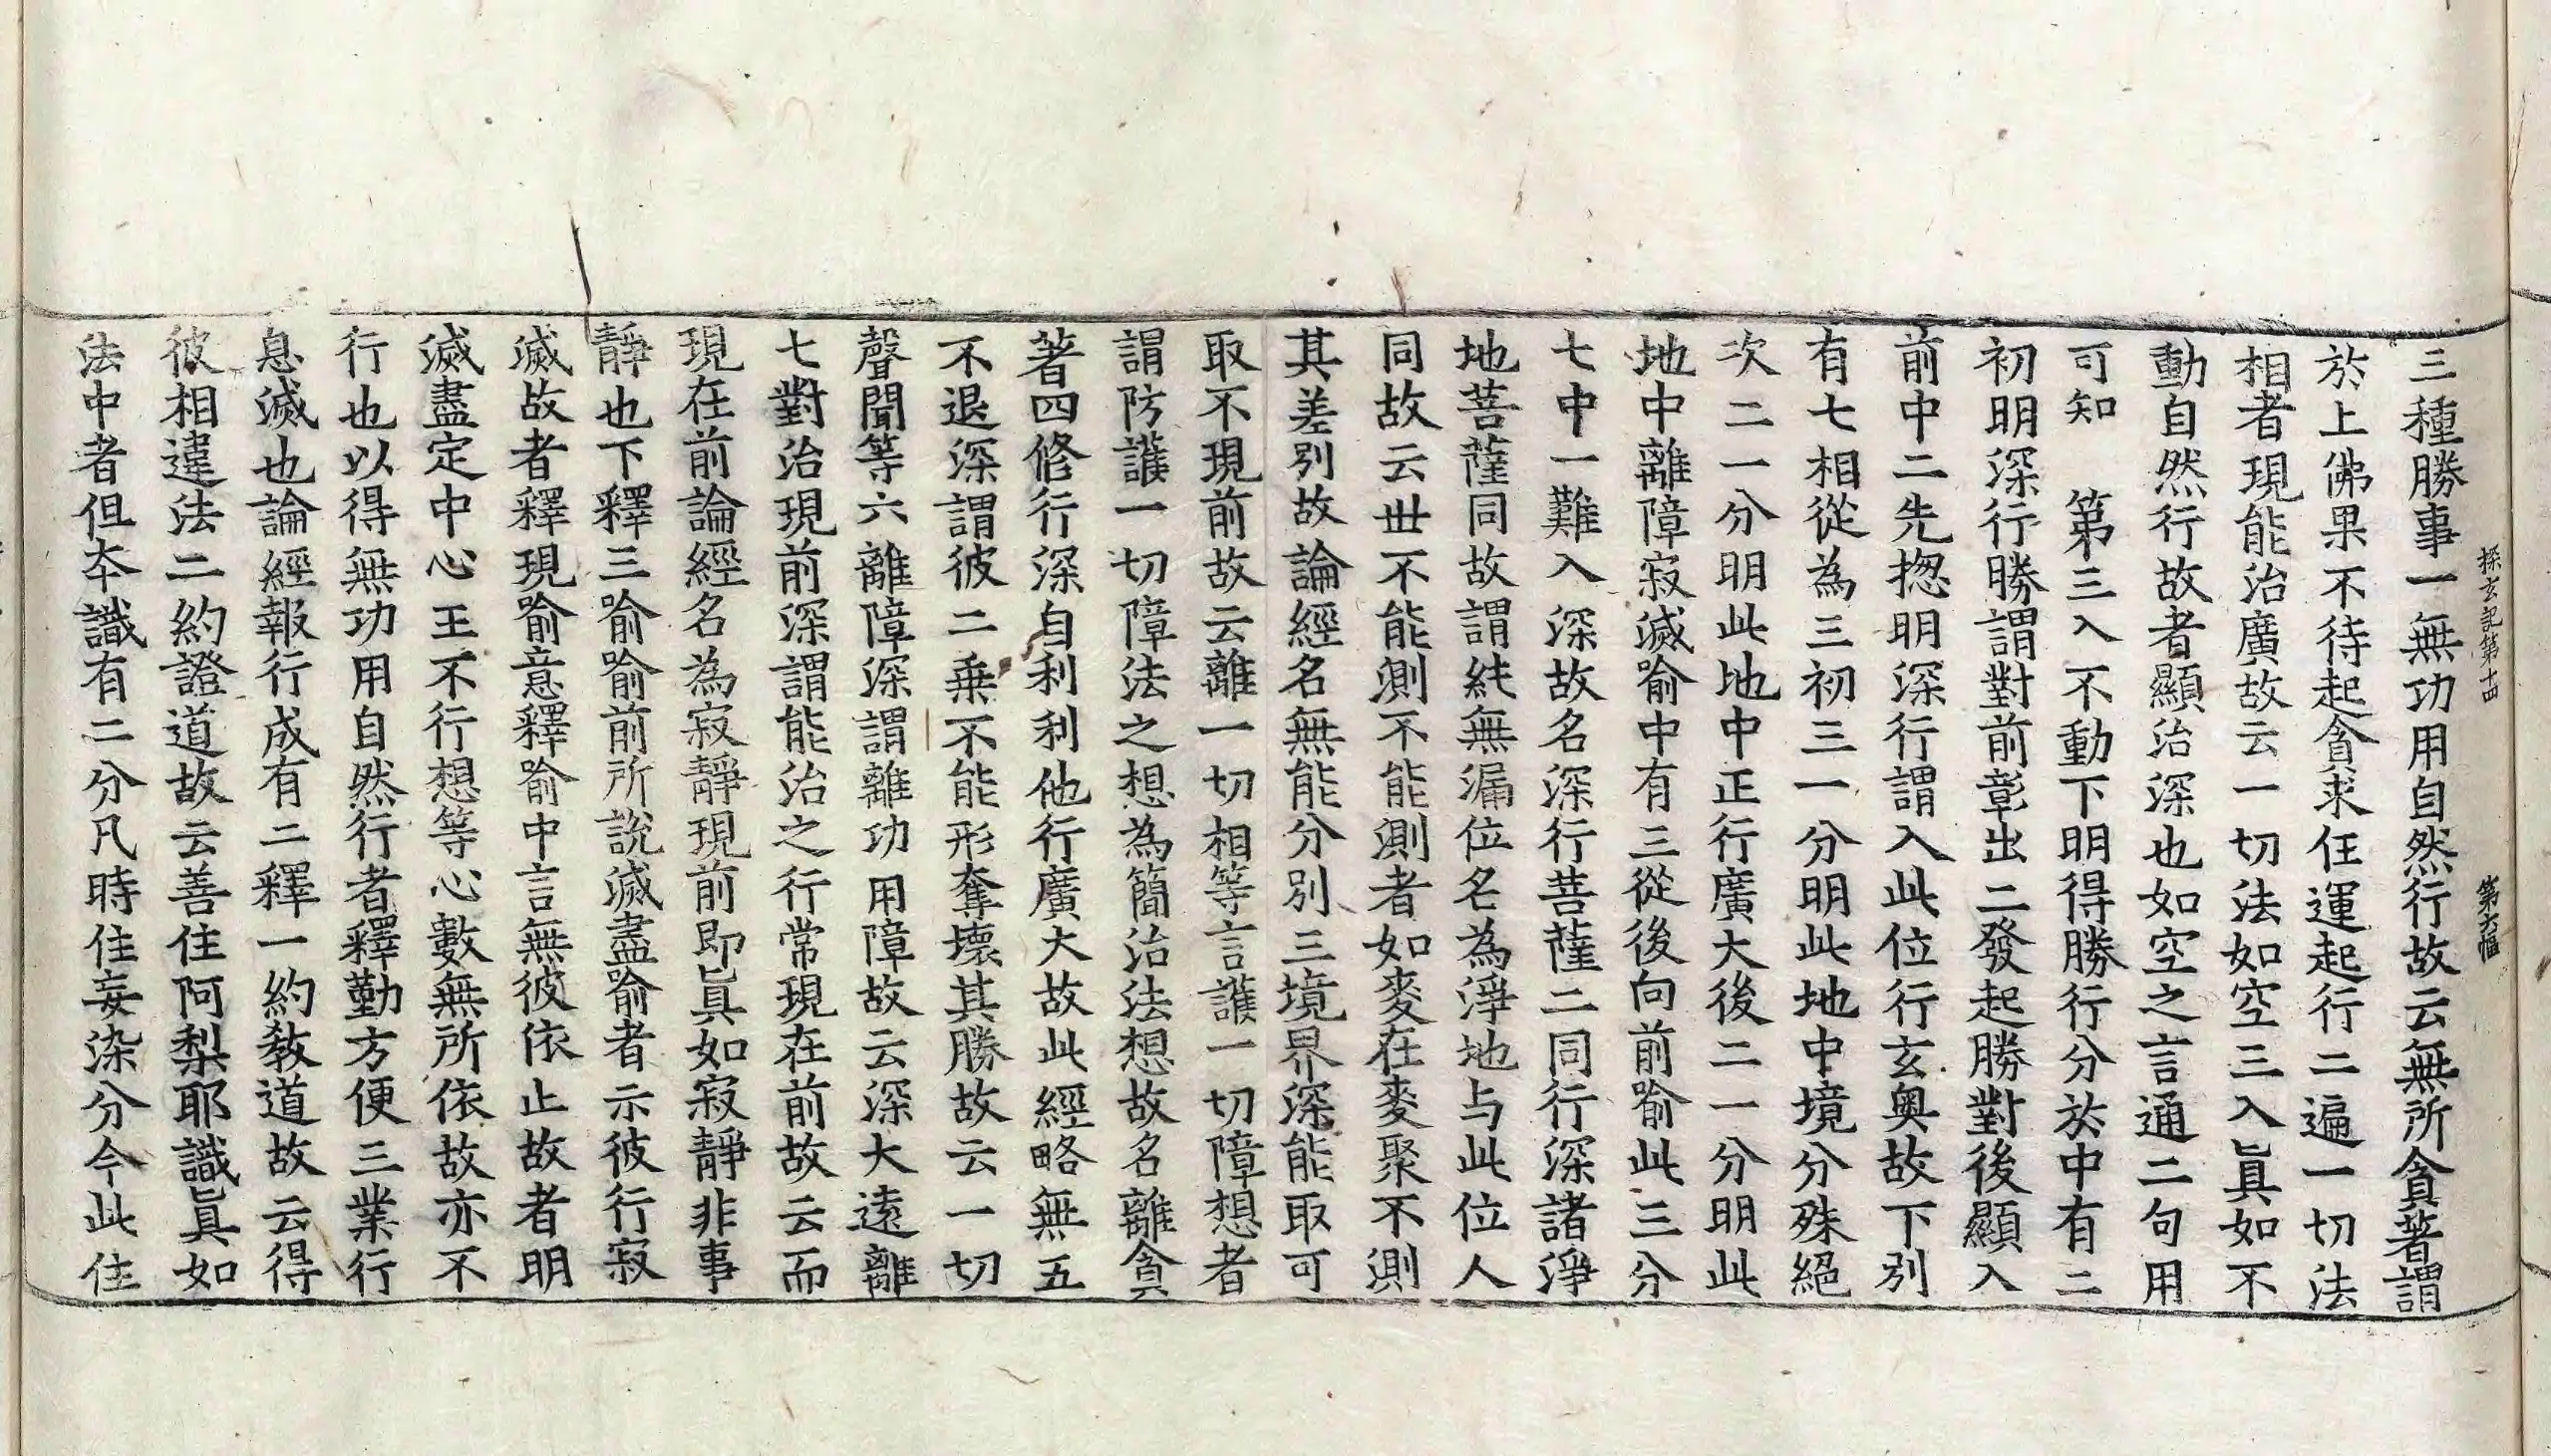 探玄記第十四　第六幅
三種勝事一無功用自然行故云無所貪著謂
於上佛果不待起貪求任運起行二遍一切法
相者現能治廣故云一切法如空三入眞如不
動自然行故者顯治深也如空之言通二句用
可知　第三入不動下明得勝行分於中有二
初明深行勝謂對前彰出二發起勝對後顯入
前中二先揔明深行謂入此位行玄奧故下別
有七相從為三初三一分明此地中境分殊絕
次二一分明此地中正行廣大後二一分明此
地中離障寂滅喻中有三從後向前喻此三分
七中一難入深故名深行菩薩二同行深諸淨
地菩薩同故謂純無漏位名為淨地与此位人
同故云世不能測不能測者如麥在麥聚不測
其差別故論經名無能分別三境界深能取可
取不現前故云離一切相等言護一切障想者
謂防護一切障法之想為簡治法想故名離貪
著四修行深自利利他行廣大故此經略無五
不退深謂彼二乗不能形奪壞其勝故云一切
聲聞等六離障深謂離功用障故云深大遠離
七對治現前深謂能治之行常現在前故云而
現在前論經名為寂靜現前即眞如寂靜非事
靜也下釋三喻喻前所說滅盡喻者示彼行寂
滅故者釋現喻意釋喻中言無彼依止故者明
滅盡定中心王不行想等心數無所依故亦不
行也以得無功用自然行者釋勤方便三業行
息滅也論經報行成有二釋一約教道故云得
彼相違法二約證道故云善住阿梨耶識眞如
法中者但本識有二分凡時住妄染分今此住